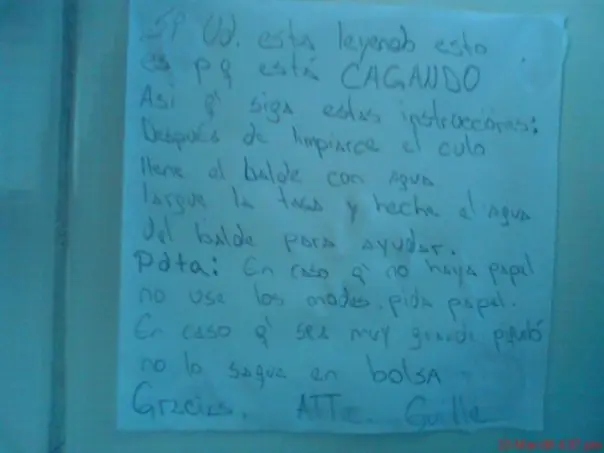 SI Ud. esta leyendo esto
es pq está CAGANDO
Asi q' siga estas instrucciones:
Después de limpiarce el culo
llene el balde con agua
largue la taza y heche el agua
del balde para ayudar.
Pdta: En caso q' no haya papel
no use los modes. pida papel.
En caso q' sea muy grande
no lo saque en bolsa
Gracias. ATTe. Guille